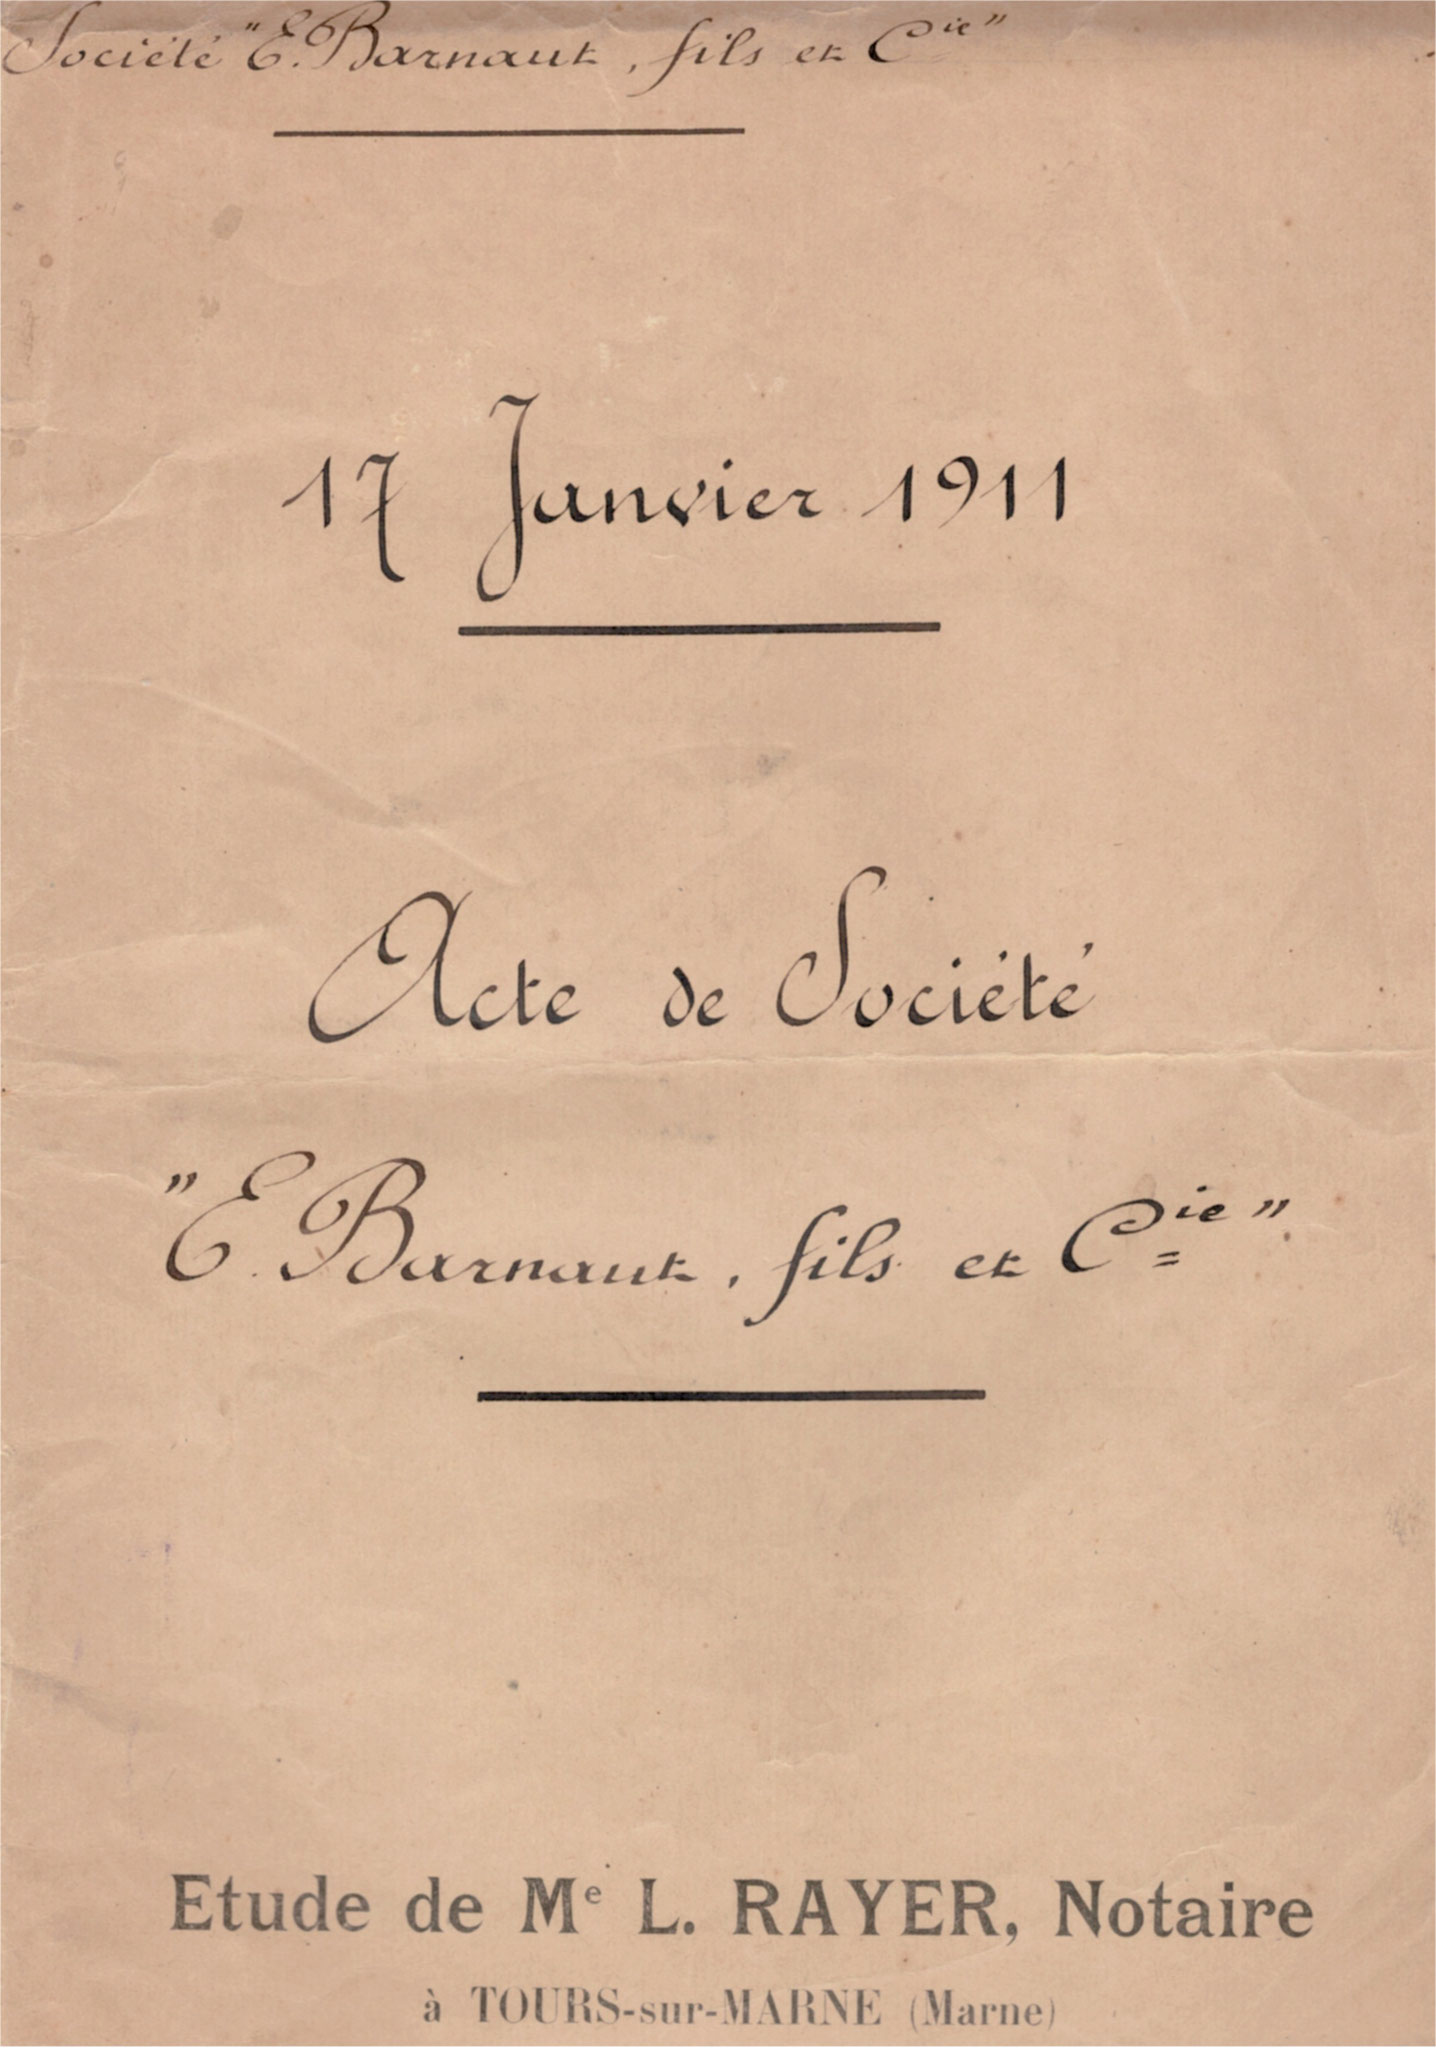 Société "E. Barnaut, fils et Cie"
17 Janvier 1911
Acte de Société
"E. Barnaut, fils et Cie"
Etude de Me L. RAYER, Notaire
à TOURS-sur-MARNE (Marne)